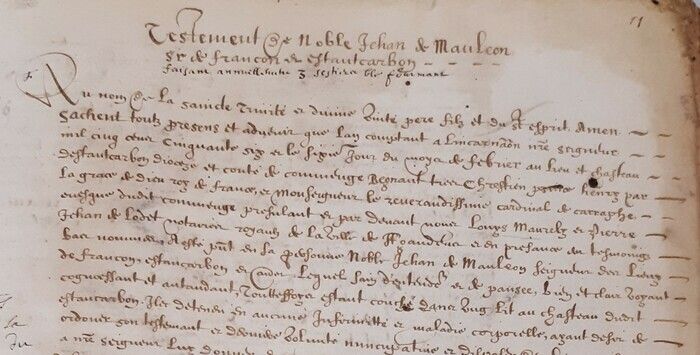 11
Testement de Noble Jehan de Mauleon
Sr de francon et estantcarbon
faisant annuellement 3 sestiers ble fromant
Au nom de La saincte Trinité et divine Unité pere filz et du St esprit Amen
Sachent toutz presens et advenir que Lan comptant a Lincarnaôn nre seigneur
mil cinq cens Cinquante six et le sixie Jour du moys de febrier au lieu et chasteau
destantcarbon dioceze et conté de commenge Regnant tres Chrestien prince henry par
La grace de dieu roy de france, et Monseigneur le reverandissime cardinal de carraphe
evesque dudit commenge presulant et par devant nous Louys et Pierre
Jehan de Lodet notaires royaulx de la Ville de et en presance des tesmoings
bas nommes, A esté pnt en sa personne Noble Jehan de Mauleon Seigneur des Lieux
de francon, estantcarbon et Lequel sain dentende et de pansee, bien et clair voyant
cognoissant et antandant, Touttesfoys estant couché dans Ung Lit au chasteau dudit
estantcarbon, Illec deteneu en aucune Infirmitté et maladie corporelle, ayant desir de
ordoner son testemant et derniere Volunté nuncupative et
a nre seigneur Luy
la
du